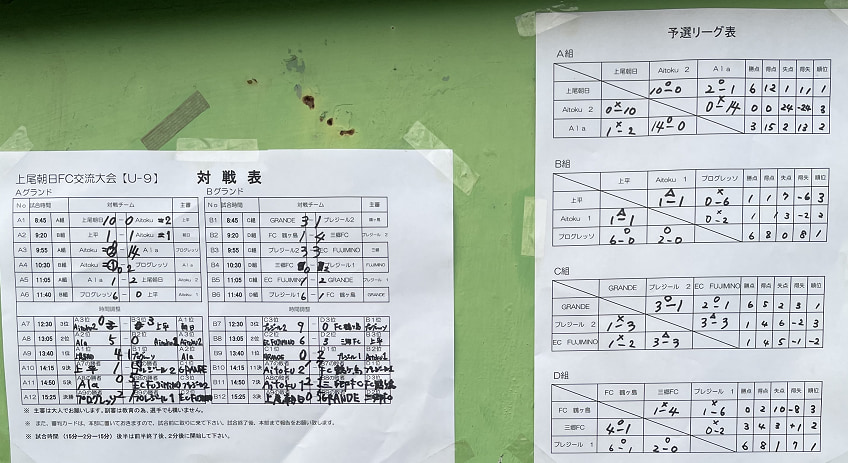 上尾朝日FC交流大会【U-9】 対戦表
Aグランド Bグランド
No 試合時間 対戦チーム 主審 No 試合時間 対戦チーム 主審
A1 8:45 A組 上尾朝日 10 - 0 Aitoku 2 上平 B1 8:45 C組 GRANDE 3 - 1 プレジール2 鶴ヶ島
A2 9:20 B組 上平 1 - 1 Aitoku 1 朝日 B2 9:20 D組 FC 鶴ヶ島 1 - 4 三郷FC
A3 9:55 A組 Aitoku - 14 Ala プログレッソ B3 9:55 C組 プレジール2 3 - 3 EC FUJIMINO 三郷
A4 10:30 B組 Aitoku 0 2 プログレッソ Ala B4 10:30 D組 三郷FC 0 2 プレジール1 FUJIMINO
A5 11:05 A組 Ala 1 - 2 上尾朝日 Aitoku B5 11:05 C組 EC FUJIMINO 1 - 2 GRANDE プレジール1
A6 11:40 B組 プログレッソ 6 - 0 上平 Aitoku 1 B6 11:40 D組 プレジール1 6 - 1 FC 鶴ヶ島
時間調整 時間調整
A7 12:30 3位 Aitoku2 0 3 上平 朝日 B7 12:30 3位 プレジール2 9 0 FC鶴ヶ島
A8 13:05 2位 Ala 5 0 Ala B8 13:05 2位 EC FUJIMINO 6 3 三郷FC 上平
A9 13:40 1位 4 1 B9 13:40 1位 GRANDE 0 2 Aitoku2
A10 14:15 9決 上平 1 プレジール2 GRANDE B10 14:15 Aitoku2 FC鶴ヶ島
A11 14:50 5決 Ala 0 EC FUJIMINO B11 14:50 Aitoku1 三郷FC
A12 15:25 決勝 プログレッソ プレジール1 B12 15:25 3決 上尾朝日 0 5 GRANDE 三郷FC
※ 主審は大人でお願いします。副審は教育の為、選手でも構いません。
※ また、審判カードは、本部に置いておきますので、試合前に取りに来て下さい。試合終了後、本部まで報告をお願い致します。
※ 試合時間 (15分ー2分ー15分) 後半は前半終了後、2分後に開始して下さい。
予選リーグ表
A組
上尾朝日 Aitoku 2 Ala 勝点 得点 失点 得失 順位
上尾朝日 10 ○ 0 2 ○ 1 6 12 1 11 1
Aitoku 2 0 × 10 0 × 14 0 0 24 -24 3
Ala 1 × 2 14 ○ 0 3 15 2 13 2
B組
上平 Aitoku 1 プログレッソ 勝点 得点 失点 得失 順位
上平 1 △ 1 0 × 6 1 1 7 -6 3
Aitoku 1 1 △ 1 0 × 2 1 1 3 -2 2
プログレッソ 6 ○ 0 2 ○ 0 6 8 0 8 1
C組
GRANDE プレジール 2 EC FUJIMINO 勝点 得点 失点 得失 順位
GRANDE 3 ○ 1 2 ○ 1 6 5 2 3 1
プレジール 2 1 × 3 3 △ 3 1 4 6 -2 3
EC FUJIMINO 1 × 2 3 △ 3 1 4 5 -1 2
D組
FC 鶴ヶ島 三郷FC プレジール 1 勝点 得点 失点 得失 順位
FC 鶴ヶ島 1 × 4 1 × 6 0 2 10 -8 3
三郷FC 4 ○ 1 0 × 2 3 4 3 +1 2
プレジール 1 6 ○ 1 2 ○ 0 6 8 1 7 1